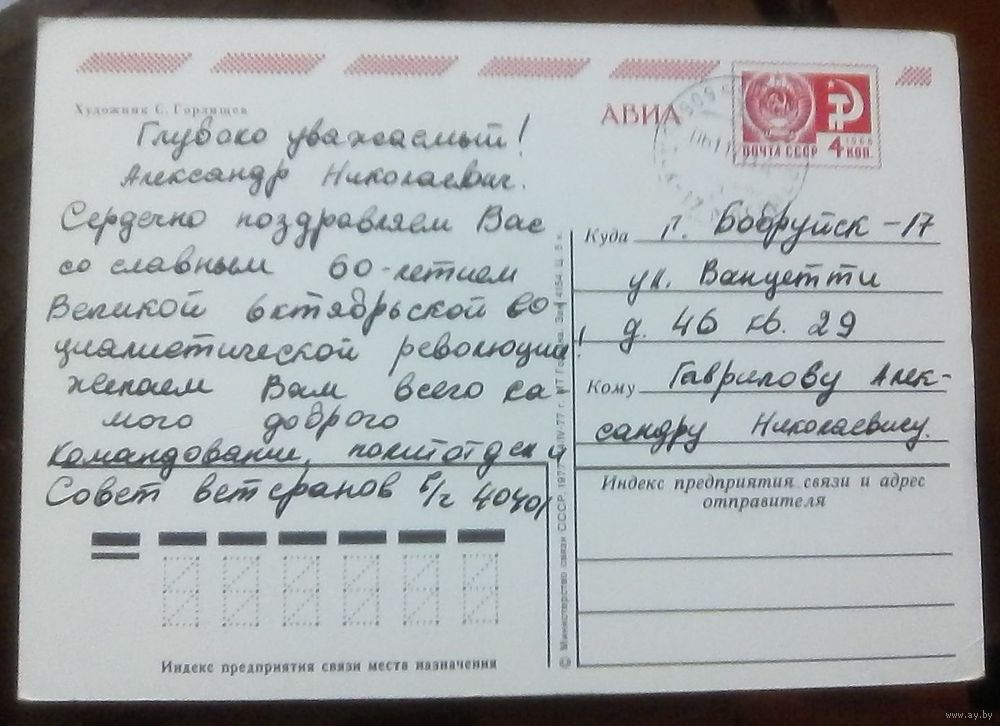 Художник С. Горлищев
Глубоко уважаемый!
Александр Николаевич.
Сердечно поздравляем Вас
со славным 60-летием
Великой Октябрьской со
циалистической революции!
желаем Вам всего са-
мого доброго
Командование, политотдел и
Совет ветеранов в/ч 40401
Индекс предприятия связи места назначения
© Министерство связи СССР, 1977
АВИА
ПОЧТА СССР
1966
4 КОП
Куда г. Бобруйск-17
ул. Ванцетти
д. 46 кв. 29
Кому Гаврилову Алек-
сандру Николаевичу.
Индекс предприятия связи и адрес
отправителя
www.ay.by